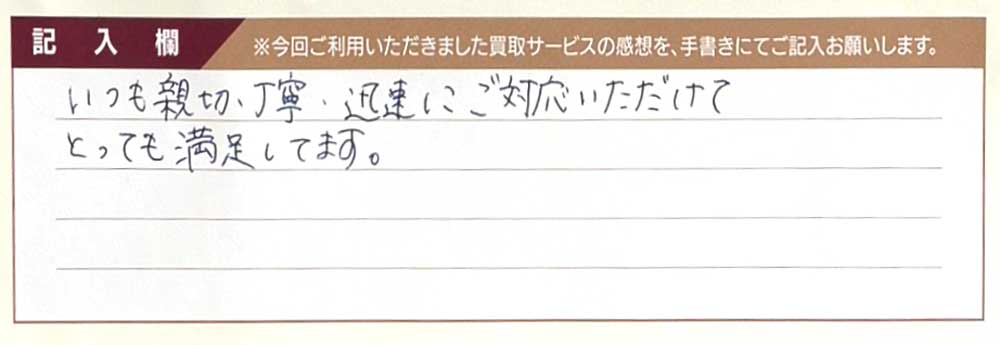 記入欄 ※今回ご利用いただきました買取サービスの感想を、手書きにてご記入お願いします。
いつも親切、丁寧・迅速にご対応いただけて
とっても満足してます。